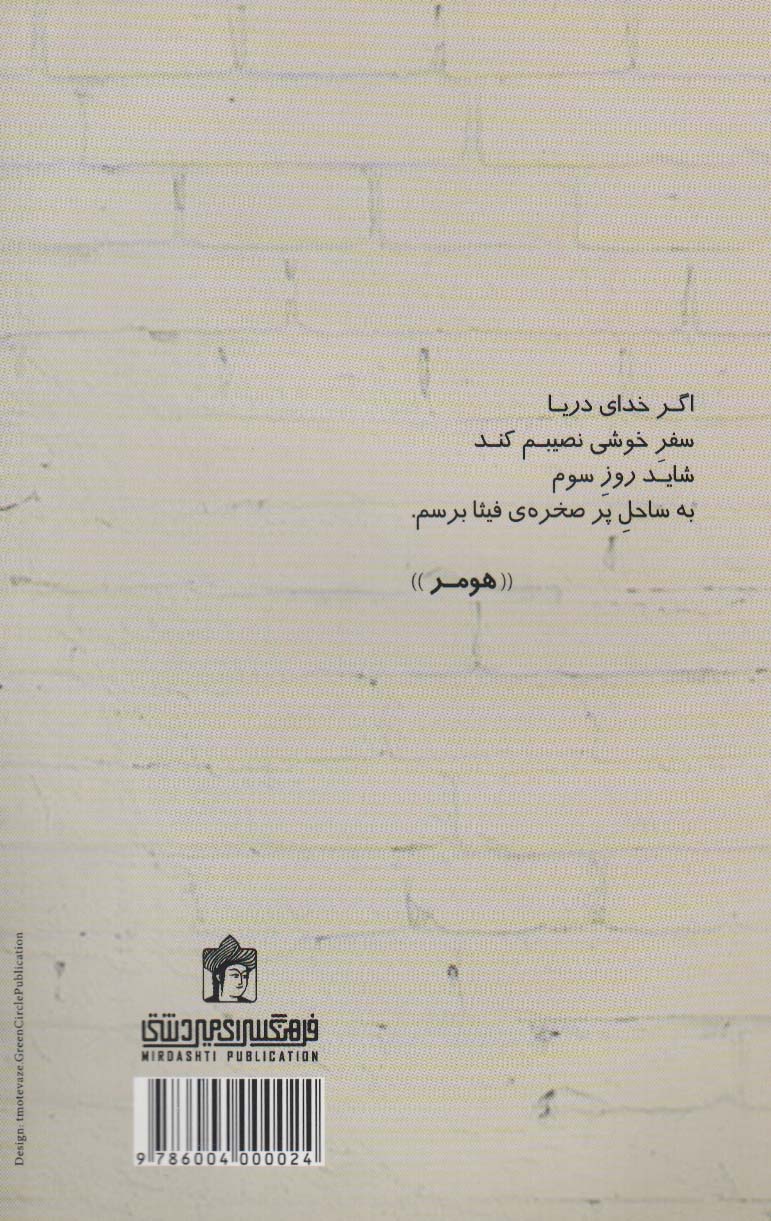 اگر خدای دریا
سفرِ خوشی نصیبم کند
شاید روزِ سوم
به ساحلِ پر صخره‌ی فیثا برسم.
((هومر))
فرهنگسرای میردشتی
MIRDASHTI PUBLICATION
9 786004 000024
Design: tmotevaze.GreenCirclePublication